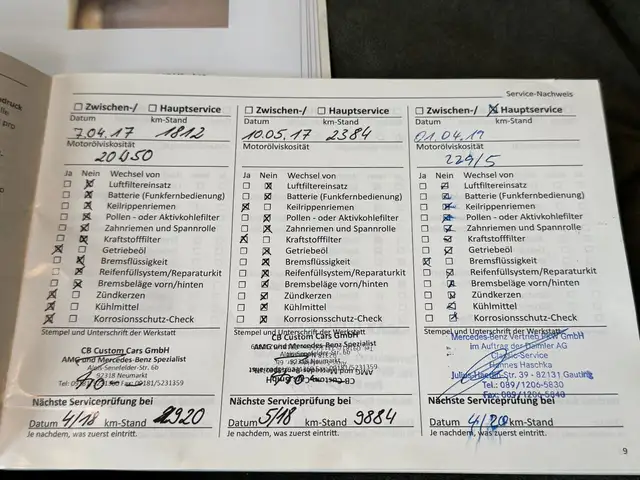 Service-Nachweis
Zwischen-/ Hauptservice
Datum km-Stand
7.04.17 1812
Motorölviskosität
20W50
Ja Nein Wechsel von
Luftfiltereinsatz
Batterie (Funkfernbedienung)
Keilrippenriemen
Pollen - oder Aktivkohlefilter
Zahnriemen und Spannrolle
Kraftstofffilter
Getriebeöl
Bremsflüssigkeit
Reifenfüllsystem/Reparaturkit
Bremsbeläge vorn/hinten
Zündkerzen
Kühlmittel
Korrosionsschutz-Check
Stempel und Unterschrift der Werkstatt
CB Custom Cars GmbH
AMG und Mercedes-Benz Spezialist
92318 Neumarkt
Nächste Serviceprüfung bei
Datum 4/18 km-Stand
Je nachdem, was zuerst eintritt.
Zwischen-/ Hauptservice
Datum km-Stand
10.05.17 2384
Motorölviskosität
Ja Nein Wechsel von
Luftfiltereinsatz
Batterie (Funkfernbedienung)
Keilrippenriemen
Pollen - oder Aktivkohlefilter
Zahnriemen und Spannrolle
Kraftstofffilter
Getriebeöl
Bremsflüssigkeit
Reifenfüllsystem/Reparaturkit
Bremsbeläge vorn/hinten
Zündkerzen
Kühlmittel
Korrosionsschutz-Check
Stempel und Unterschrift der Werkstatt
CB Custom Cars GmbH
AMG und Mercedes-Benz Spezialist
Nächste Serviceprüfung bei
Datum 5/18 km-Stand 9884
Je nachdem, was zuerst eintritt.
Zwischen-/ Hauptservice
Datum km-Stand
Motorölviskosität
229/5
Ja Nein Wechsel von
Luftfiltereinsatz
Batterie (Funkfernbedienung)
Keilrippenriemen
Pollen - oder Aktivkohlefilter
Zahnriemen und Spannrolle
Kraftstofffilter
Getriebeöl
Bremsflüssigkeit
Reifenfüllsystem/Reparaturkit
Bremsbeläge vorn/hinten
Zündkerzen
Kühlmittel
Korrosionsschutz-Check
Stempel und Unterschrift der Werkstatt
Mercedes-Benz Vertrieb PKW GmbH
im Auftrag der Daimler AG
Classic-Service
Hannes Haschka
39 - 82131 Gauting
Tel.: 089/1206-5830
Fax: 089/1206-5840
Nächste Serviceprüfung bei
Datum 4/20 km-Stand
Je nachdem, was zuerst eintritt.
9